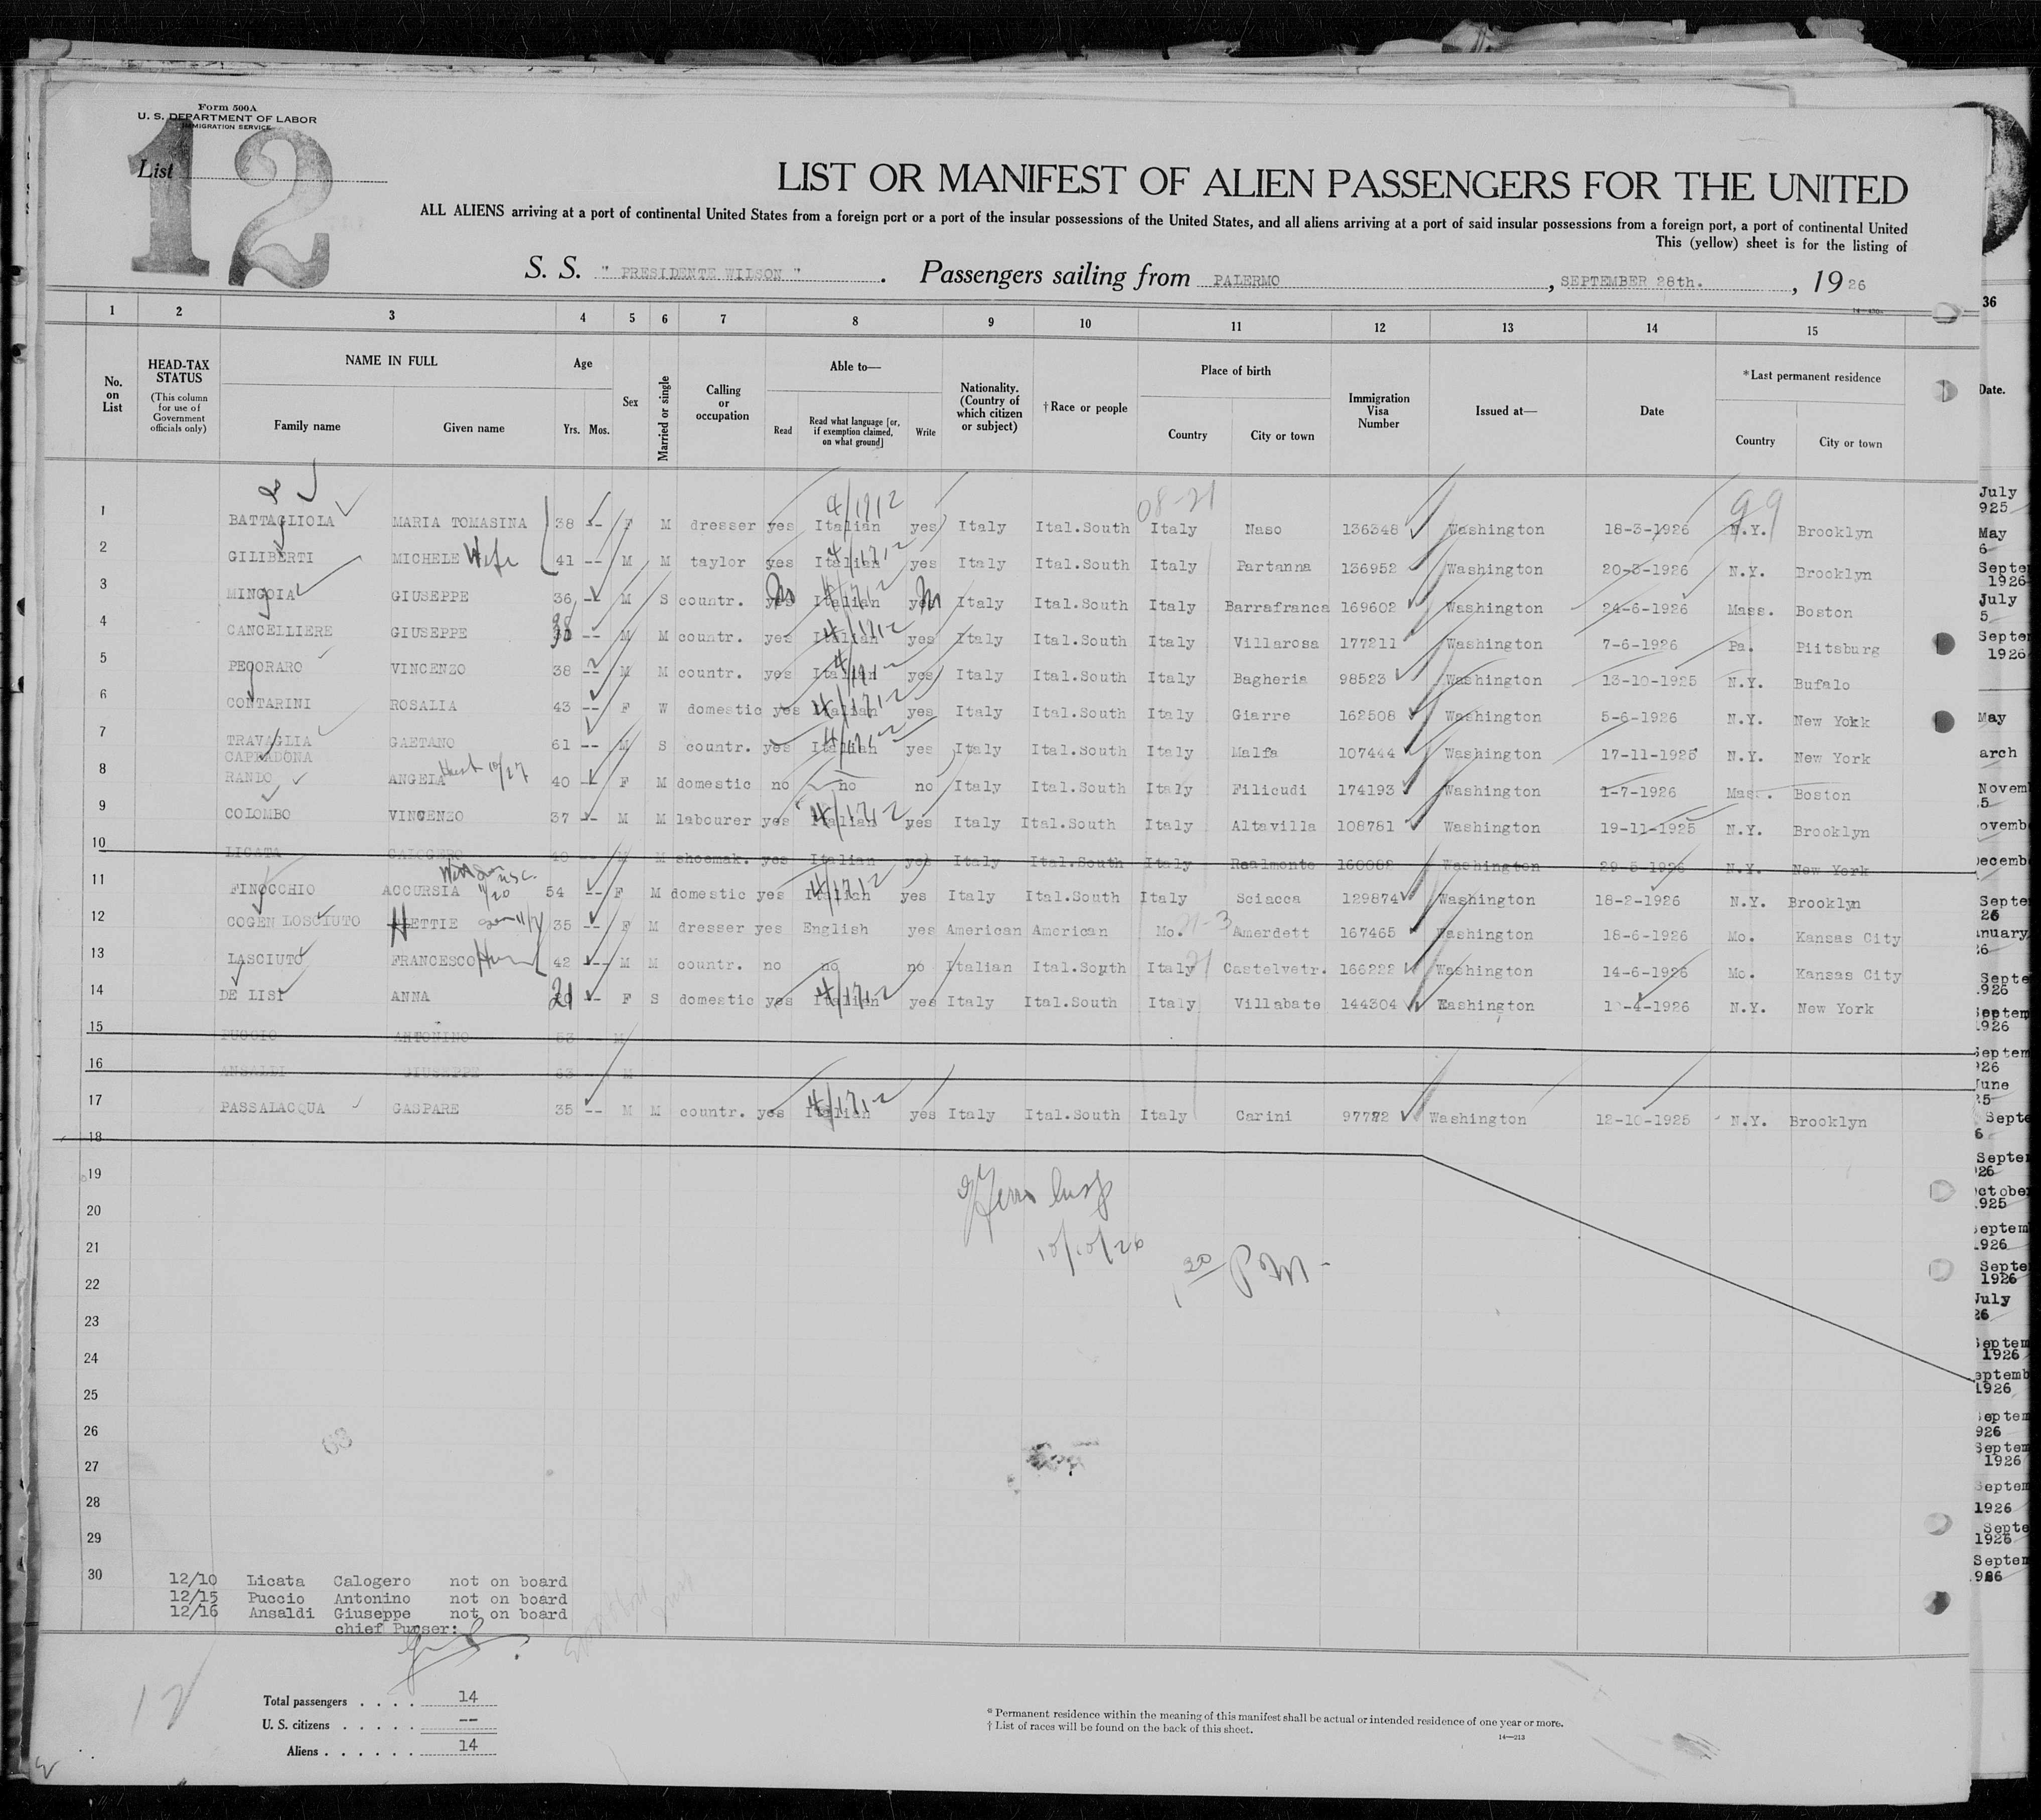 Form 500A
U. S. DEPARTMENT OF LABOR
IMMIGRATION SERVICE
12
List
LIST OR MANIFEST OF ALIEN PASSENGERS FOR THE UNITED
ALL ALIENS arriving at a port of continental United States from a foreign port or a port of the insular possessions of the United States, and all aliens arriving at a port of said insular possessions from a foreign port, a port of continental United
This (yellow) sheet is for the listing of
S. S. " PRESIDENTE WILSON " . Passengers sailing from PALERMO , SEPTEMBER 28th. , 19 26
1 2 3 4 5 6 7 8 9 10 11 12 13 14 15
No. on List
HEAD-TAX STATUS (This column for use of Government officials only)
NAME IN FULL Family name Given name
Age Yrs. Mos.
Sex
Married or single
Calling or occupation
Able to— Read Read what language [or, if exemption claimed, on what ground] Write
Nationality. (Country of which citizen or subject)
† Race or people
Place of birth Country City or town
Immigration Visa Number
Issued at—
Date
*Last permanent residence Country City or town
1 BATTAGLIOLA MARIA TOMASINA 38 -- F M dresser yes Italian yes Italy Ital.South Italy Naso 136348 Washington 18-3-1926 N.Y. Brooklyn
2 GILIBERTI MICHELE Wife 41 -- M M taylor yes Italian yes Italy Ital.South Italy Partanna 136952 Washington 20-3-1926 N.Y. Brooklyn
3 MINGOIA GIUSEPPE 36 -- M S countr. yes Italian yes Italy Ital.South Italy Barrafranca 169602 Washington 24-6-1926 Mass. Boston
4 CANCELLIERE GIUSEPPE -- M M countr. yes Italian yes Italy Ital.South Italy Villarosa 177211 Washington 7-6-1926 Pa. Piitsburg
5 PECORARO VINCENZO 38 -- M M countr. yes Italian yes Italy Ital.South Italy Bagheria 98523 Washington 13-10-1925 N.Y. Bufalo
6 CONTARINI ROSALIA 43 -- F W domestic yes Italian yes Italy Ital.South Italy Giarre 162508 Washington 5-6-1926 N.Y. New Yokk
7 TRAVAGLIA GAETANO 61 -- M S countr. yes Italian yes Italy Ital.South Italy Malfa 107444 Washington 17-11-1925 N.Y. New York
CAPRADONA
8 RANDO ANGEIA 40 -- F M domestic no no no Italy Ital.South Italy Filicudi 174193 Washington 1-7-1926 Mass. Boston
9 COLOMBO VINCENZO 37 -- M M labourer yes Italian yes Italy Ital.South Italy Altavilla 108781 Washington 19-11-1925 N.Y. Brooklyn
10 LICATA CALOGERO 48 -- M M shoemak. yes Italian yes Italy Ital.South Italy Realmonte 160082 Washington 29-5-1926 N.Y. New York
11 FINOCCHIO ACCURSIA 54 -- F M domestic yes Italian yes Italy Ital.South Italy Sciacca 129874 Washington 18-2-1926 N.Y. Brooklyn
12 COGEN LOSCIUTO HETTIE 35 -- F M dresser yes English yes American American Mo. Amerdett 167465 Washington 18-6-1926 Mo. Kansas City
13 LASCIUTO FRANCESCO 42 -- M M countr. no no no Italian Ital.South Italy Castelvetr. 166222 Washington 14-6-1926 Mo. Kansas City
14 DE LISI ANNA 21 -- F S domestic yes Italian yes Italy Ital.South Italy Villabate 144304 Washington -4-1926 N.Y. New York
15 PUCCIO ANTONINO 53 -- M
16 ANSALDI GIUSEPPE 63 -- M
17 PASSALACQUA GASPARE 35 -- M M countr. yes Italian yes Italy Ital.South Italy Carini 97772 Washington 12-10-1925 N.Y. Brooklyn
18
19
20
10/10/26
21
1 30 PM
22
23
24
25
26
27
28
29
30
12/10 Licata Calogero not on board
12/15 Puccio Antonino not on board
12/16 Ansaldi Giuseppe not on board
chief Purser:
12
Total passengers . . . . 14
U. S. citizens . . . . . --
Aliens . . . . . . 14
* Permanent residence within the meaning of this manifest shall be actual or intended residence of one year or more.
† List of races will be found on the back of this sheet.
14—213